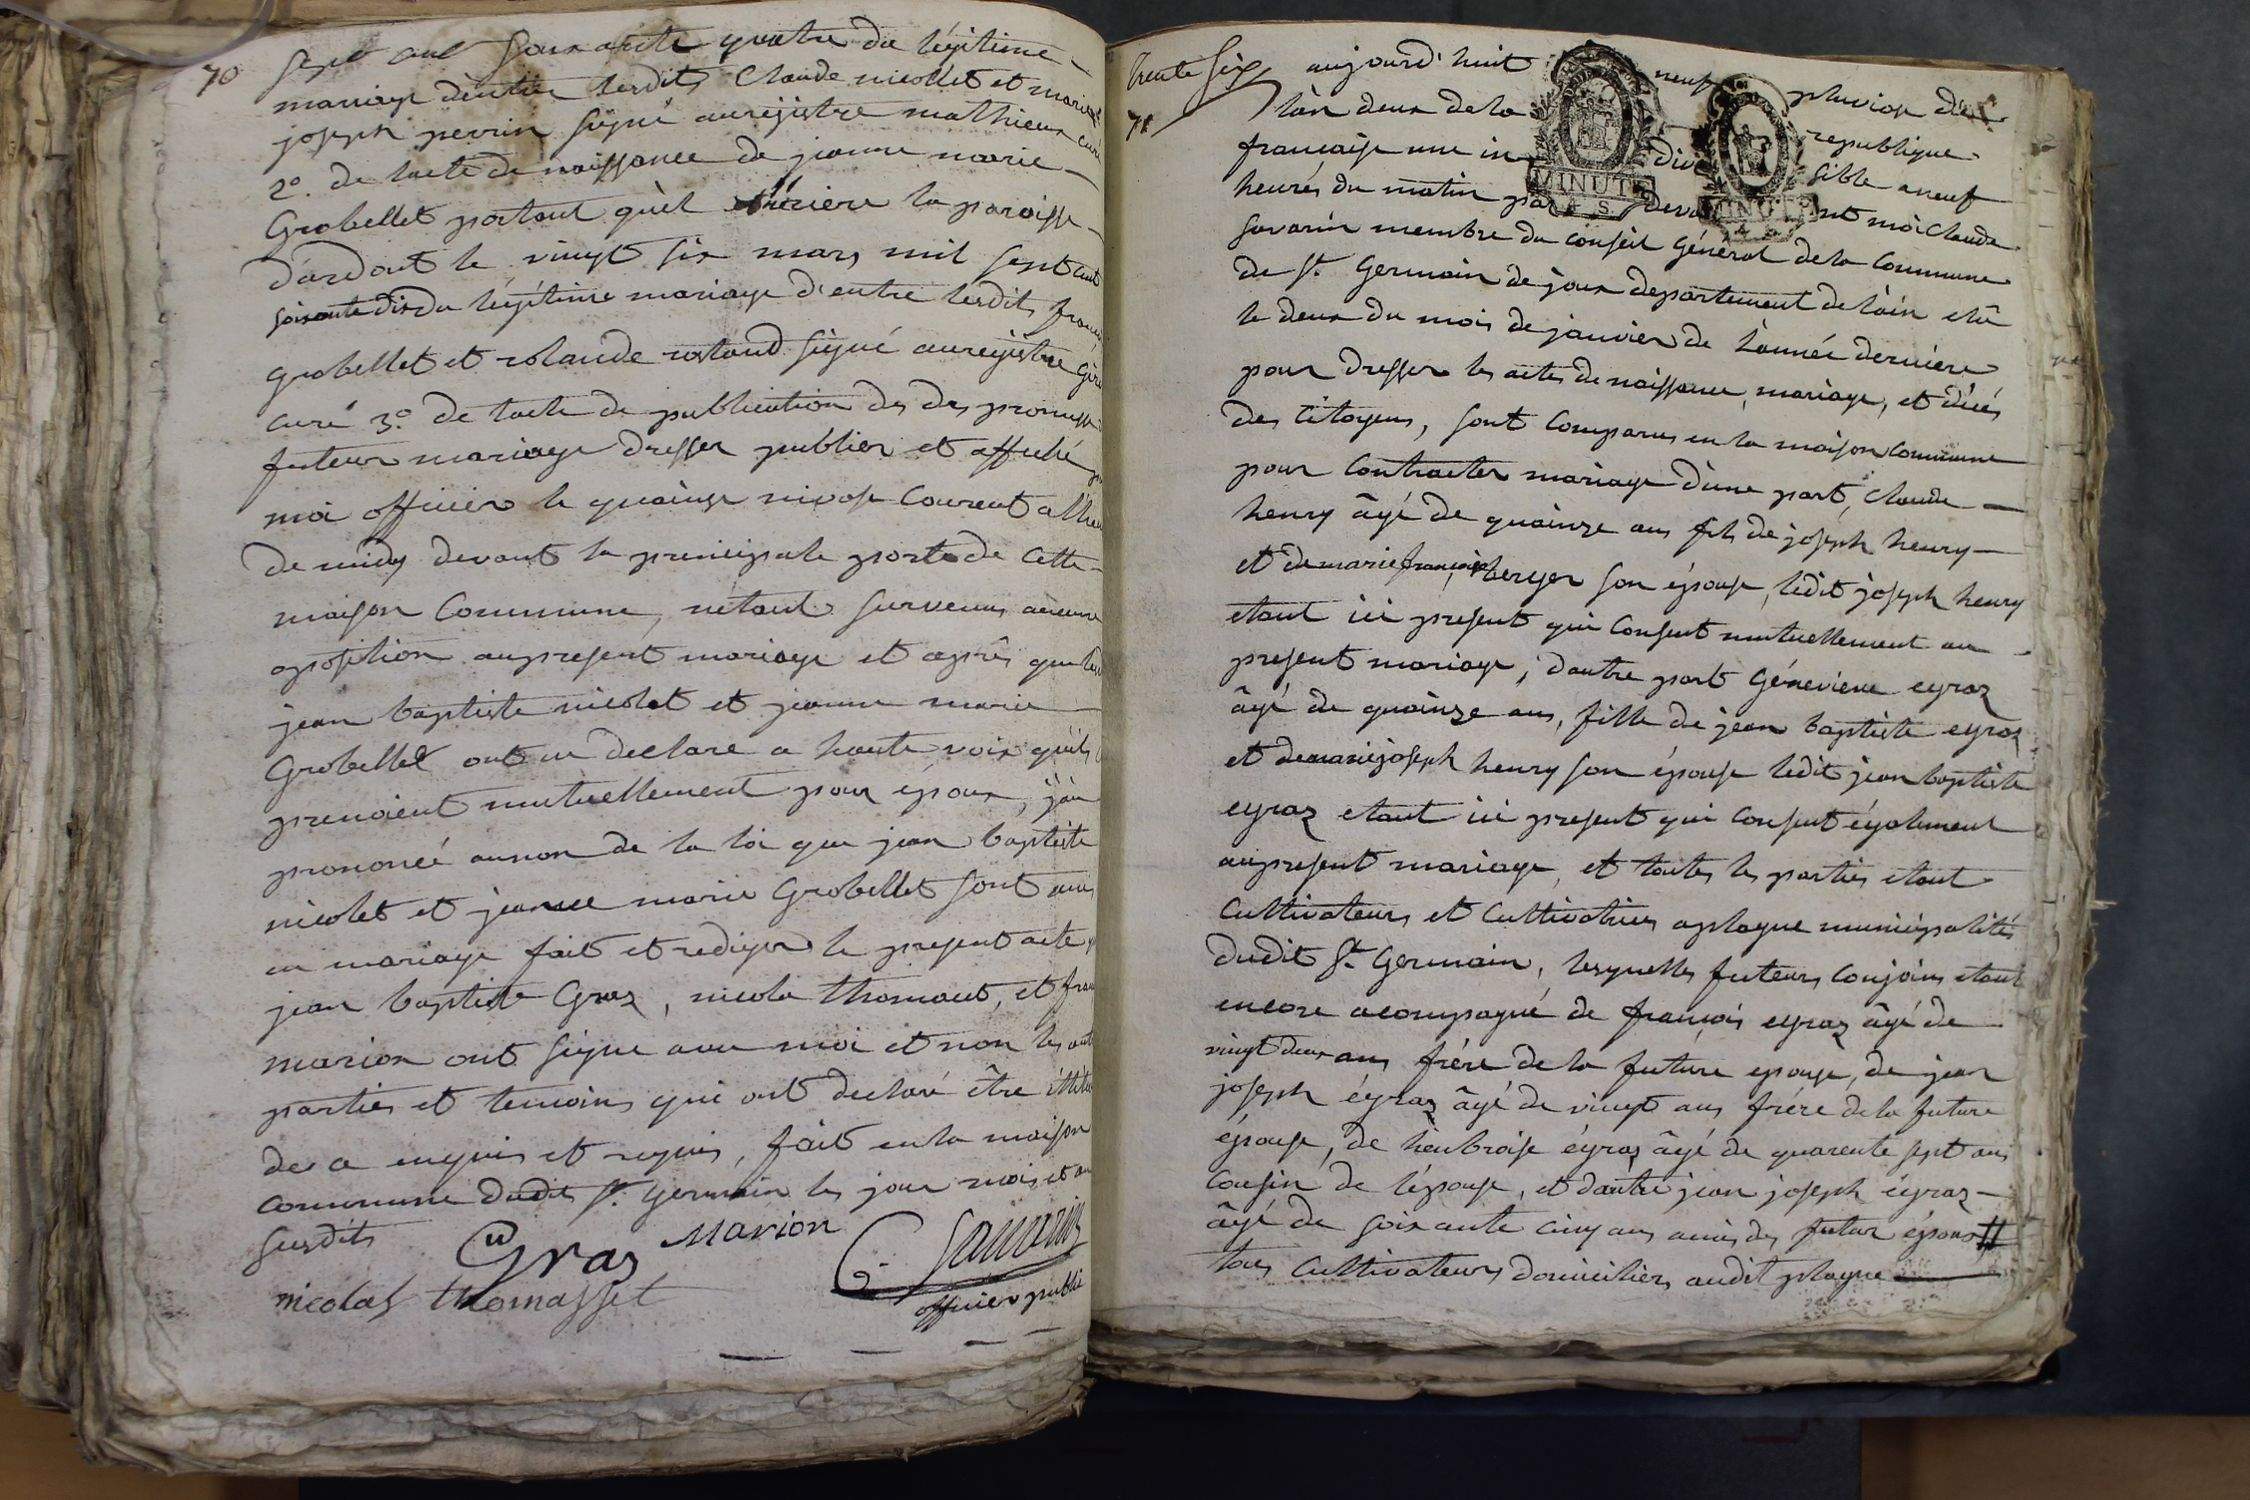 70
sept cent soixante quatre du légitime
mariage d'entre lesdits Claude nicollet et marie
joseph perrin signé auregistre mathieux curé
2º. de lacte de naissance de jeanne marie
Grobellet portant quèl la paroisse
d'ardont le vingt six mars mil sept cent
soixante dix du legitime mariage d'entre lesdits
Grobellet et rolande rostand signé auregistre
curé 3º. de lacte de publication des des promesse
futeur mariage dresser publier et affiché
moi officier le quainze nivose Courent a
de midy devant la prencipale porte de cette
maison Commune, netant survenus aucune
oposition aupresent mariage et après que
jean baptiste nicolet et jeanne marie
Grobellet ont declare a haute voix quils
prenoient mutuellement pour époux, jai
prononcé aunon de la loi que jean baptiste
nicolet et jeanne marie Grobellet sont unis
en mariage fait et rediger le present acte
jean baptiste Gras, nicola thomaut, et
marion ont signe avec moi et non les
parties et temoins qui ont declaré être
de ce enquis et requis, fait en la maison
commune dudit St. Germain les jour mois et an
susdits
Gras Marion C. Savarin
nicolas thomasset officier public
trente six aujourd'huit neuf pluviose de
71
làn deux de la republique
francaise une in divi sible a neuf
heures du matin par deva nt moi Claude
Savarin membre du conseil Général de la Commune
de St. Germain de joux departement de làin elû
le deux du mois de janvier de l'année derniere
pour dresser les actes de naissance, mariage, et décés
des Citoyens, sont comparus en la maison commune
pour Contracter mariage d'une part, Claude
henry âgé de quainze ans fils de joséph henry
et de marie françoise berger son épouse, ledit joseph henry
etant ici present qui consent mutuellement au
present mariage; dautre part Généviene egraz
âgé de quainze ans, fille de jean baptiste egraz
et demariejoseph henry son épouse ledit jean baptiste
egraz etant ici present qui consent également
aupresent mariage, et toutes les parties etant
Cultivateurs et Cultivatrices aplagne municipalités
dudit St. Germain, lesquelles futeurs Conjoins etant
encore acompagné de francois egraz âgé de
vingt deux ans frére de la future epouse, de jean
joseph égraz âgé de vingt ans frére de la future
épouse, de égraz âgé de quarente sept ans
Cousin de l'épouse, et dautre jean joseph égraz
âgé de soixante cinq ans amis des futur époux
tous Cultivateurs domiciliers audit plagne